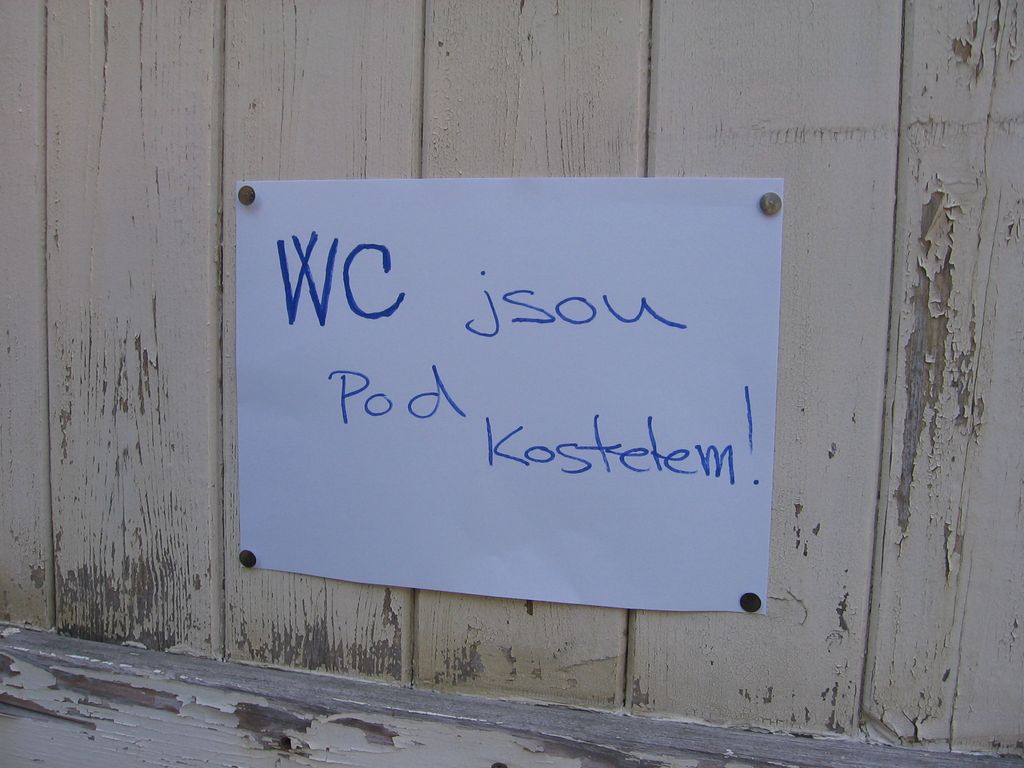 WC jsou
Pod
kostelem!